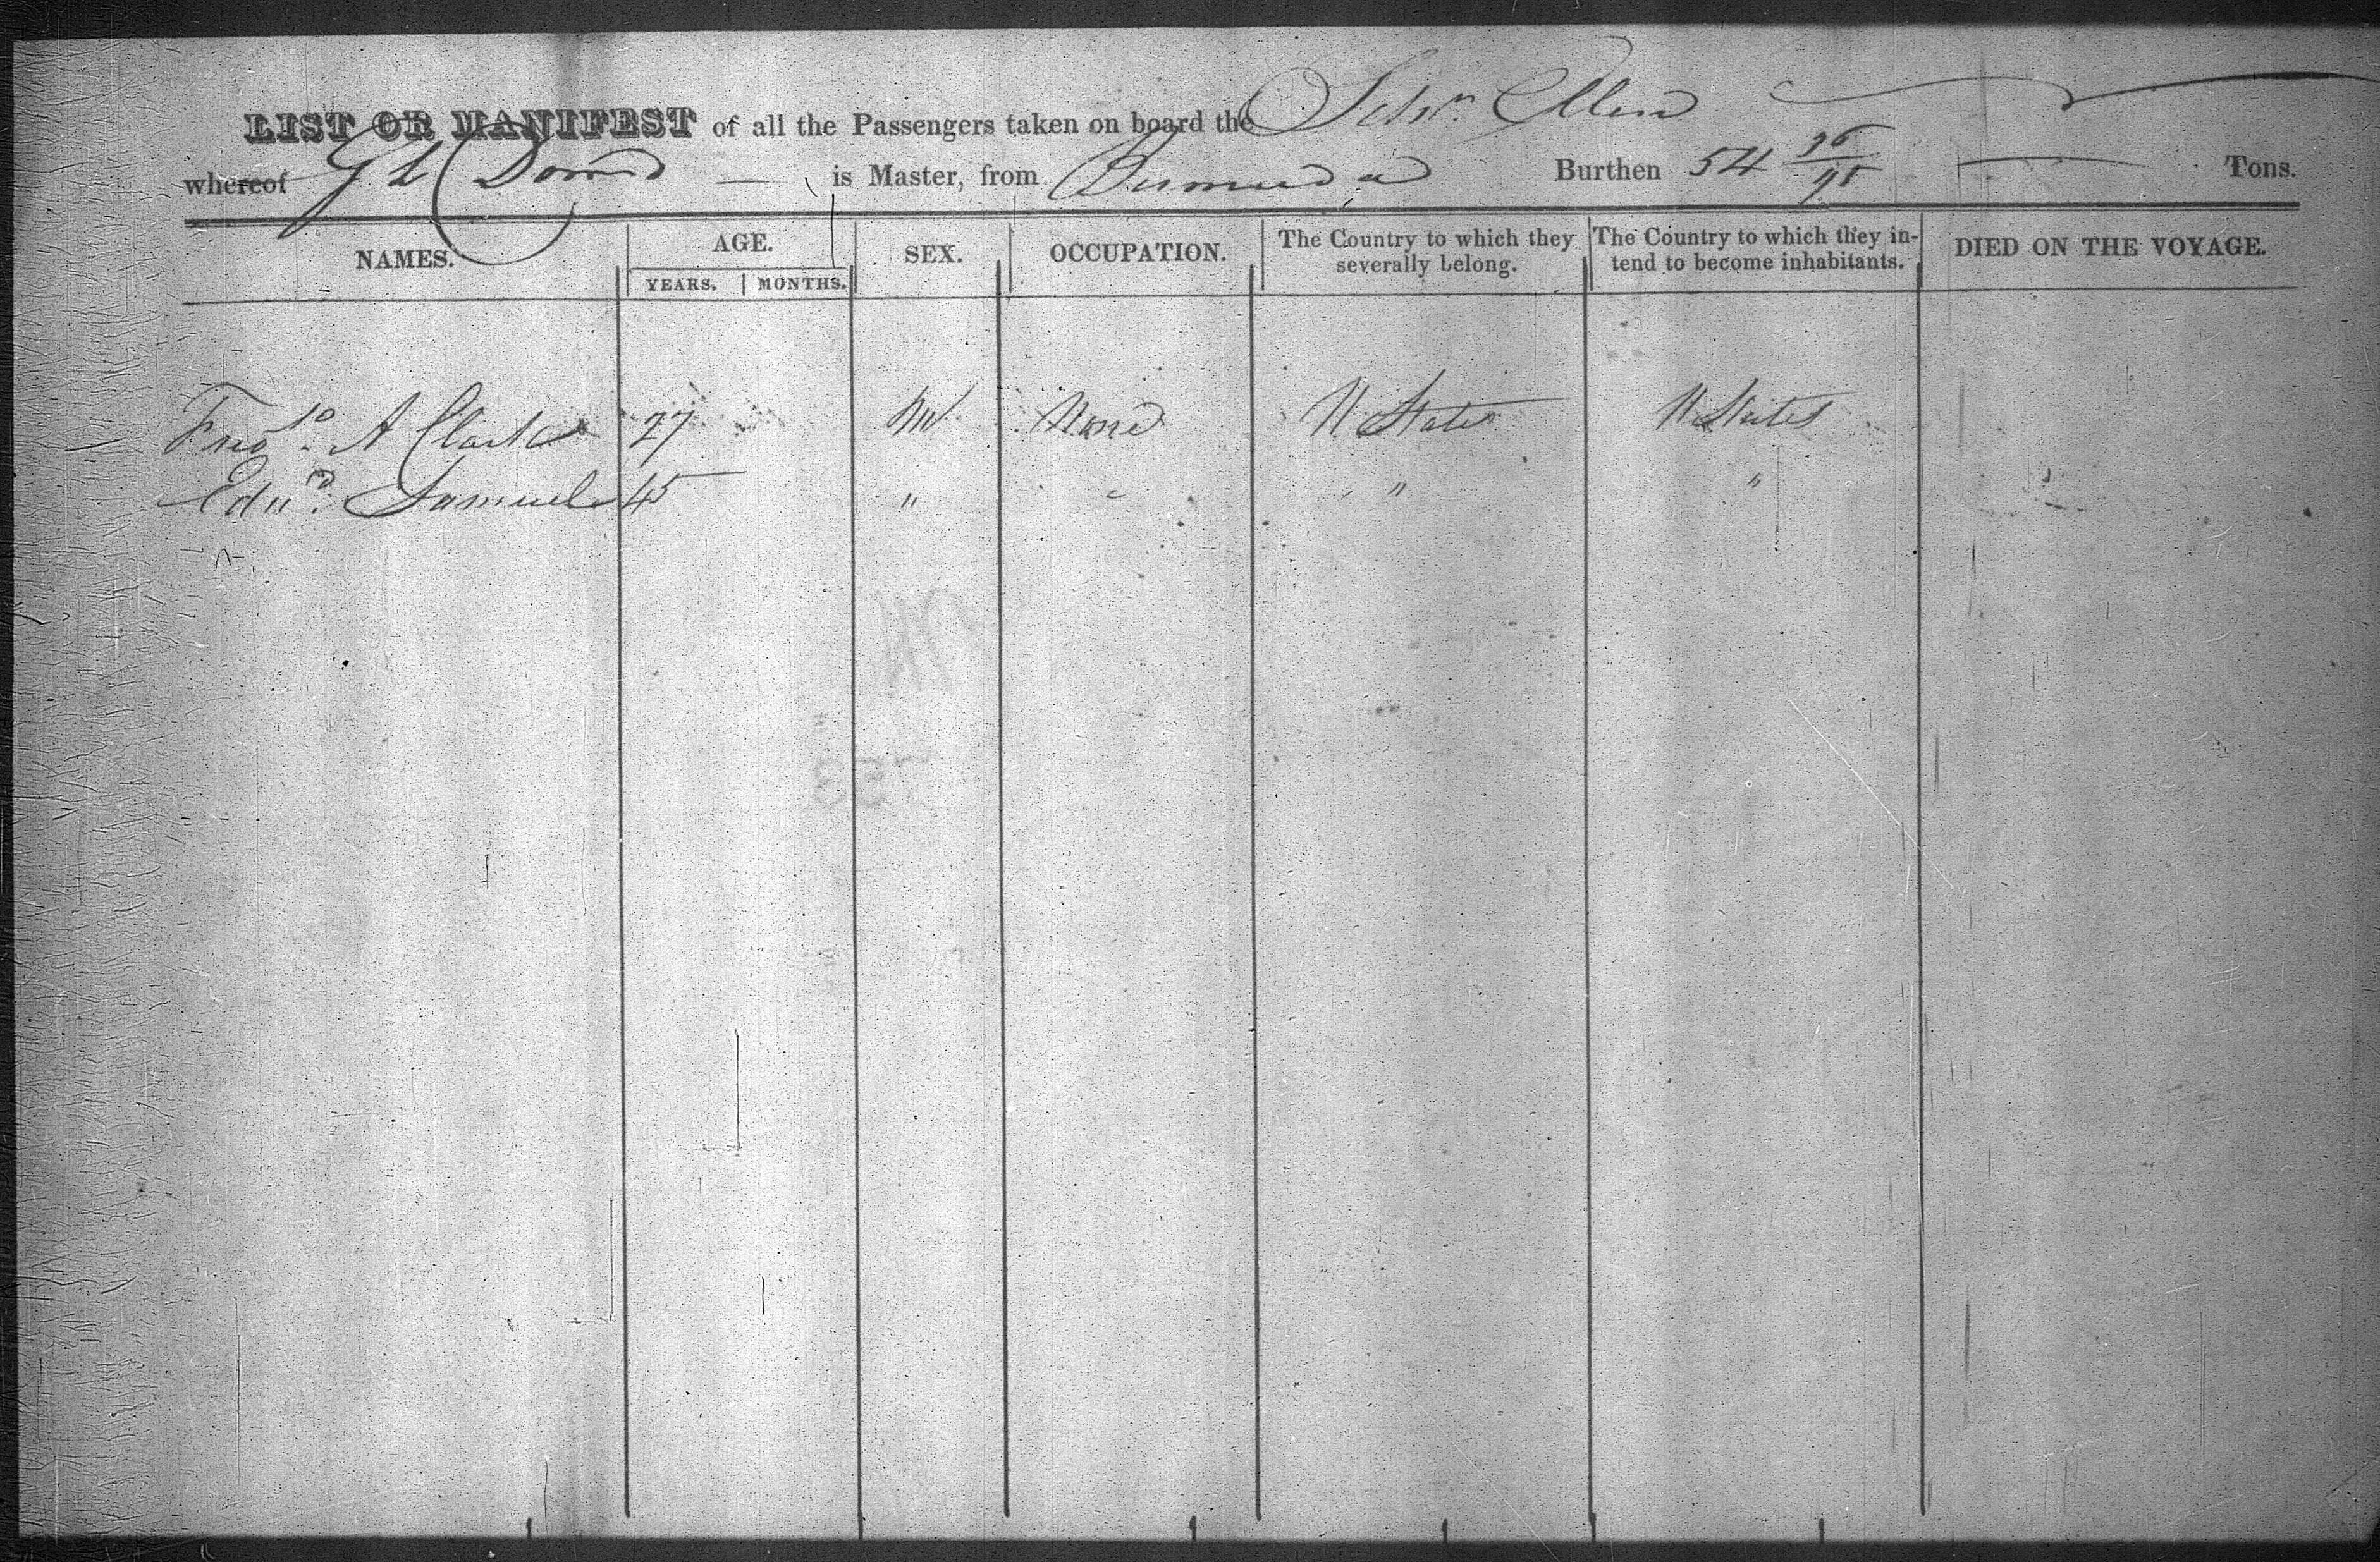 LIST OR MANIFEST of all the Passengers taken on board the Schr. Ellen
whereof G L Dorr is Master, from Bermuda Burthen 54 36/95 Tons.
NAMES. AGE. SEX. OCCUPATION. The Country to which they severally belong. The Country to which they intend to become inhabitants. DIED ON THE VOYAGE.
YEARS. MONTHS.
A Clark 27 M None U States U States
Edwd. Samuels 45 " " " "
753